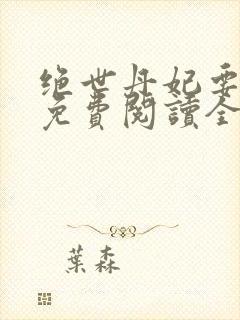 绝世丹妃要
免費閱讀全
葉森